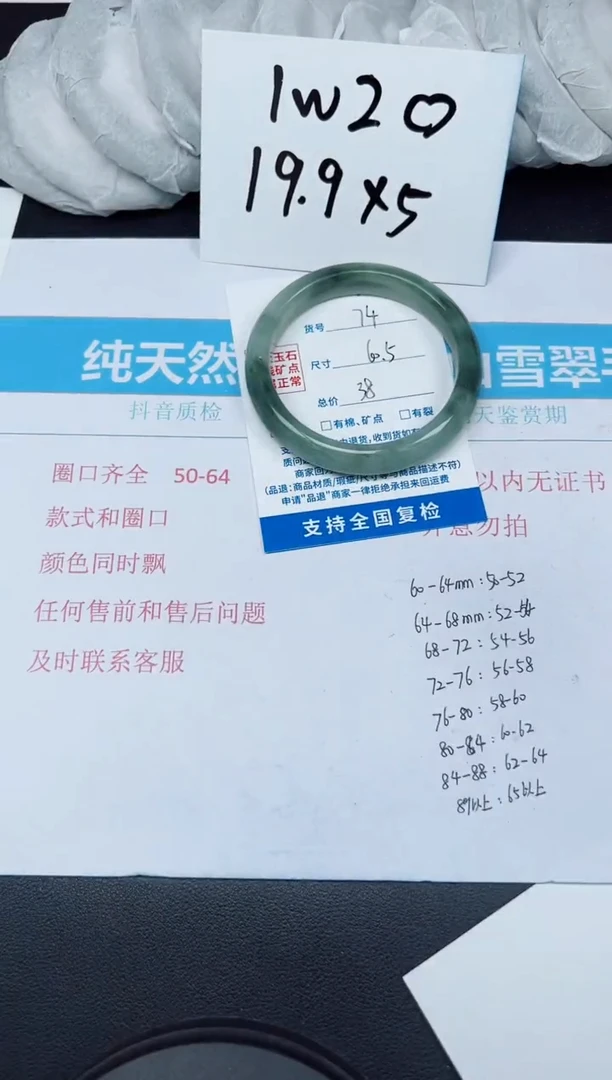 1w20
19.9×5
货号 74
尺寸 60.5
总价 38
玉石
矿点
正常
□有棉、矿点 □有裂
由退货,收到货如有
质问
商家回
(品退:商品材质/瑕疵/尺寸等与商品描述不符)
申请"品退"商家一律拒绝承担来回运费
支持全国复检
纯天然 雪翠手
抖音质检 天鉴赏期
圈口齐全 50-64
款式和圈口
颜色同时飘
任何售前和售后问题
及时联系客服
以内无证书
介意勿拍
60-64mm:50-52
64-68mm:52-54
68-72:54-56
72-76:56-58
76-80:58-60
80-84:60-62
84-88:62-64
89以上:65以上